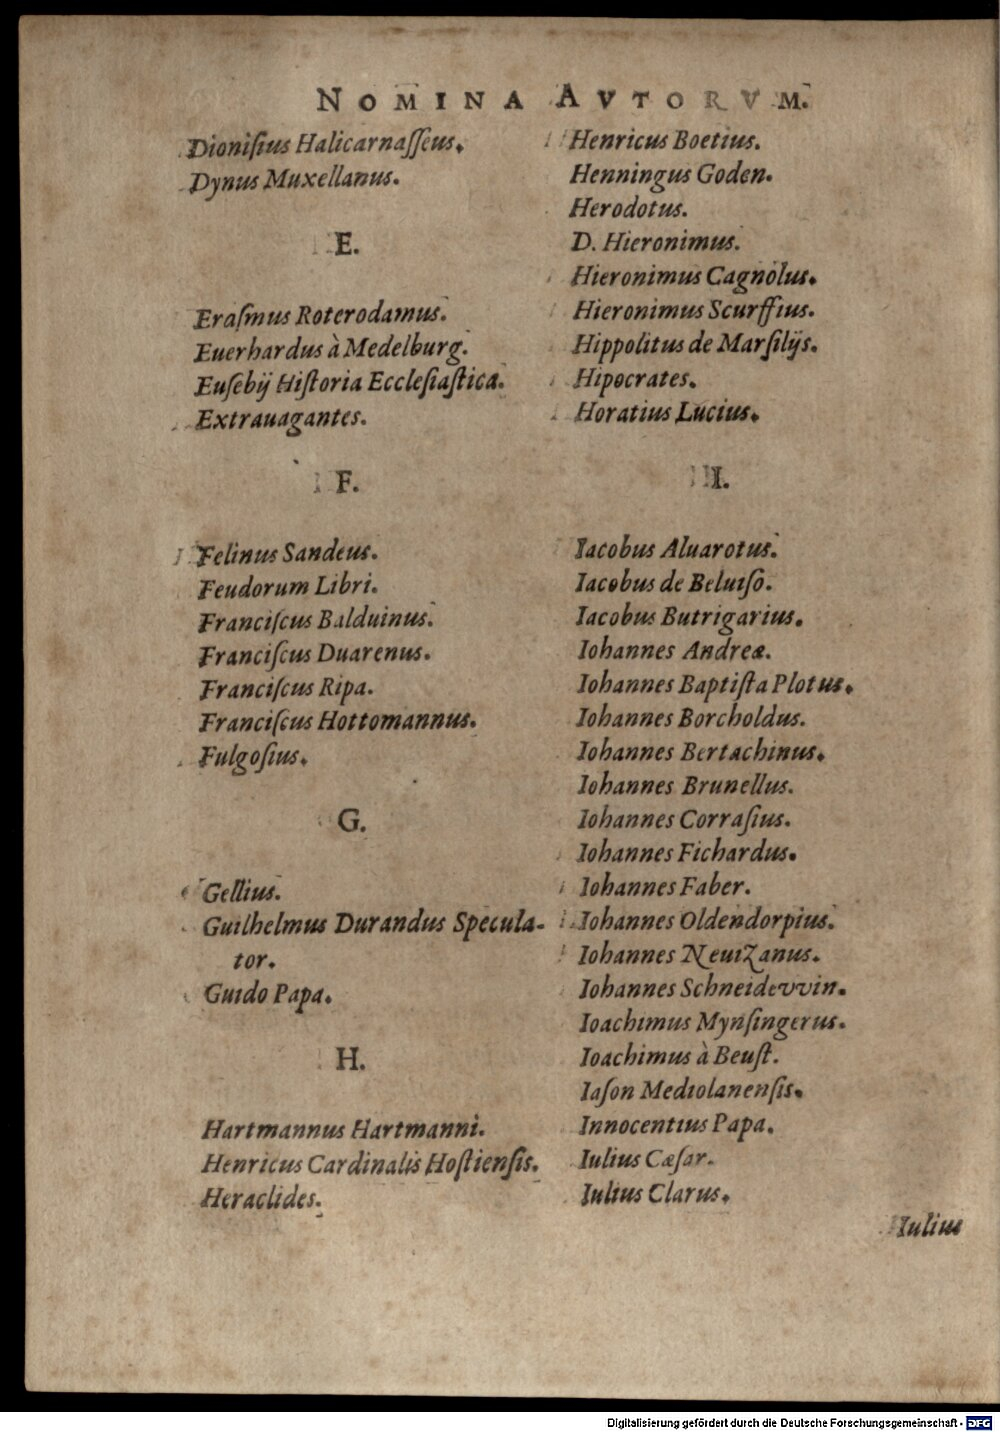 NOMINA AVTORVM.
Dioniſius Halicarnaſſeus.
Dynus Muxellanus.
E.
Eraſmus Roterodamus.
Euerhardus à Medelburg.
Euſebij Hiſtoria Eccleſiaſtica.
Extrauagantes.
F.
Felinus Sandeus.
Feudorum Libri.
Franciſcus Balduinus.
Franciſcus Duarenus.
Franciſcus Ripa.
Franciſcus Hottomannus.
Fulgoſius.
G.
Gellius.
Guilhelmus Durandus Specula-
tor.
Guido Papa.
H.
Hartmannus Hartmanni.
Henricus Cardinalis Hoſtienſis.
Heraclides.
Henricus Boetius.
Henningus Goden.
Herodotus.
D. Hieronimus.
Hieronimus Cagnolus.
Hieronimus Scurffius.
Hippolitus de Marſilijs.
Hipocrates.
Horatius Lucius.
I.
Iacobus Aluarotus.
Iacobus de Beluiſo.
Iacobus Butrigarius.
Iohannes Andreæ.
Iohannes Baptiſta Plotus.
Iohannes Borcholdus.
Iohannes Bertachinus.
Iohannes Brunellus.
Iohannes Corraſius.
Iohannes Fichardus.
Iohannes Faber.
Iohannes Oldendorpius.
Iohannes Neuizanus.
Iohannes Schneidevvin.
Ioachimus Mynſingerus.
Ioachimus à Beuſt.
Iaſon Mediolanenſis.
Innocentius Papa.
Iulius Cæſar.
Iulius Clarus.
Iulius
Digitalisierung gefördert durch die Deutsche Forschungsgemeinschaft - DFG